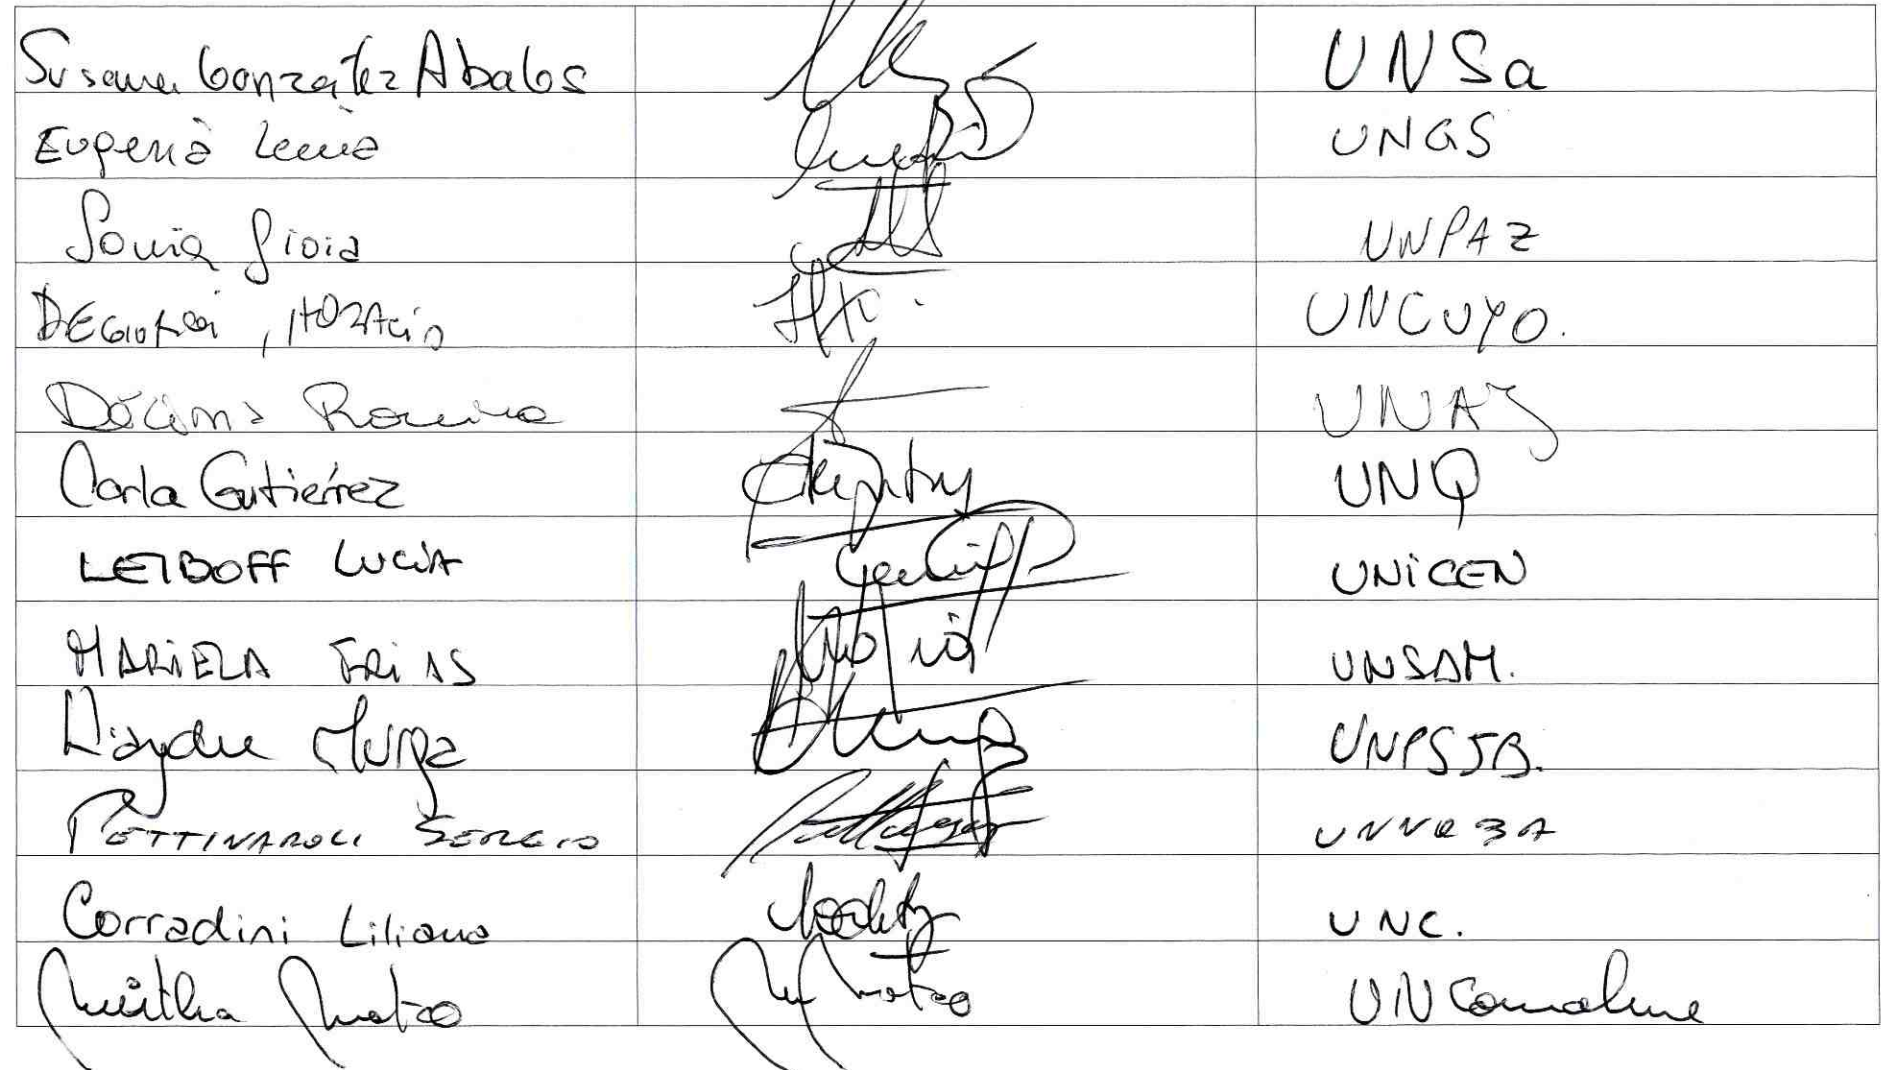 Susana González Abalos UNSa
Eugenia UNGS
Sonia Gioia UNPAZ
, HORACIO UNCUYO.
Décima Romina UNAJ
Carla Gutiérrez UNQ
LEIBOFF LUCIA UNICEN
MARIELA FRIAS UNSAM.
Haydee Murga UNPSJB.
PETTINAROLI SERGIO UNNOBA
Corradini Liliana UNC.
Mirtha Mateo UNComahue